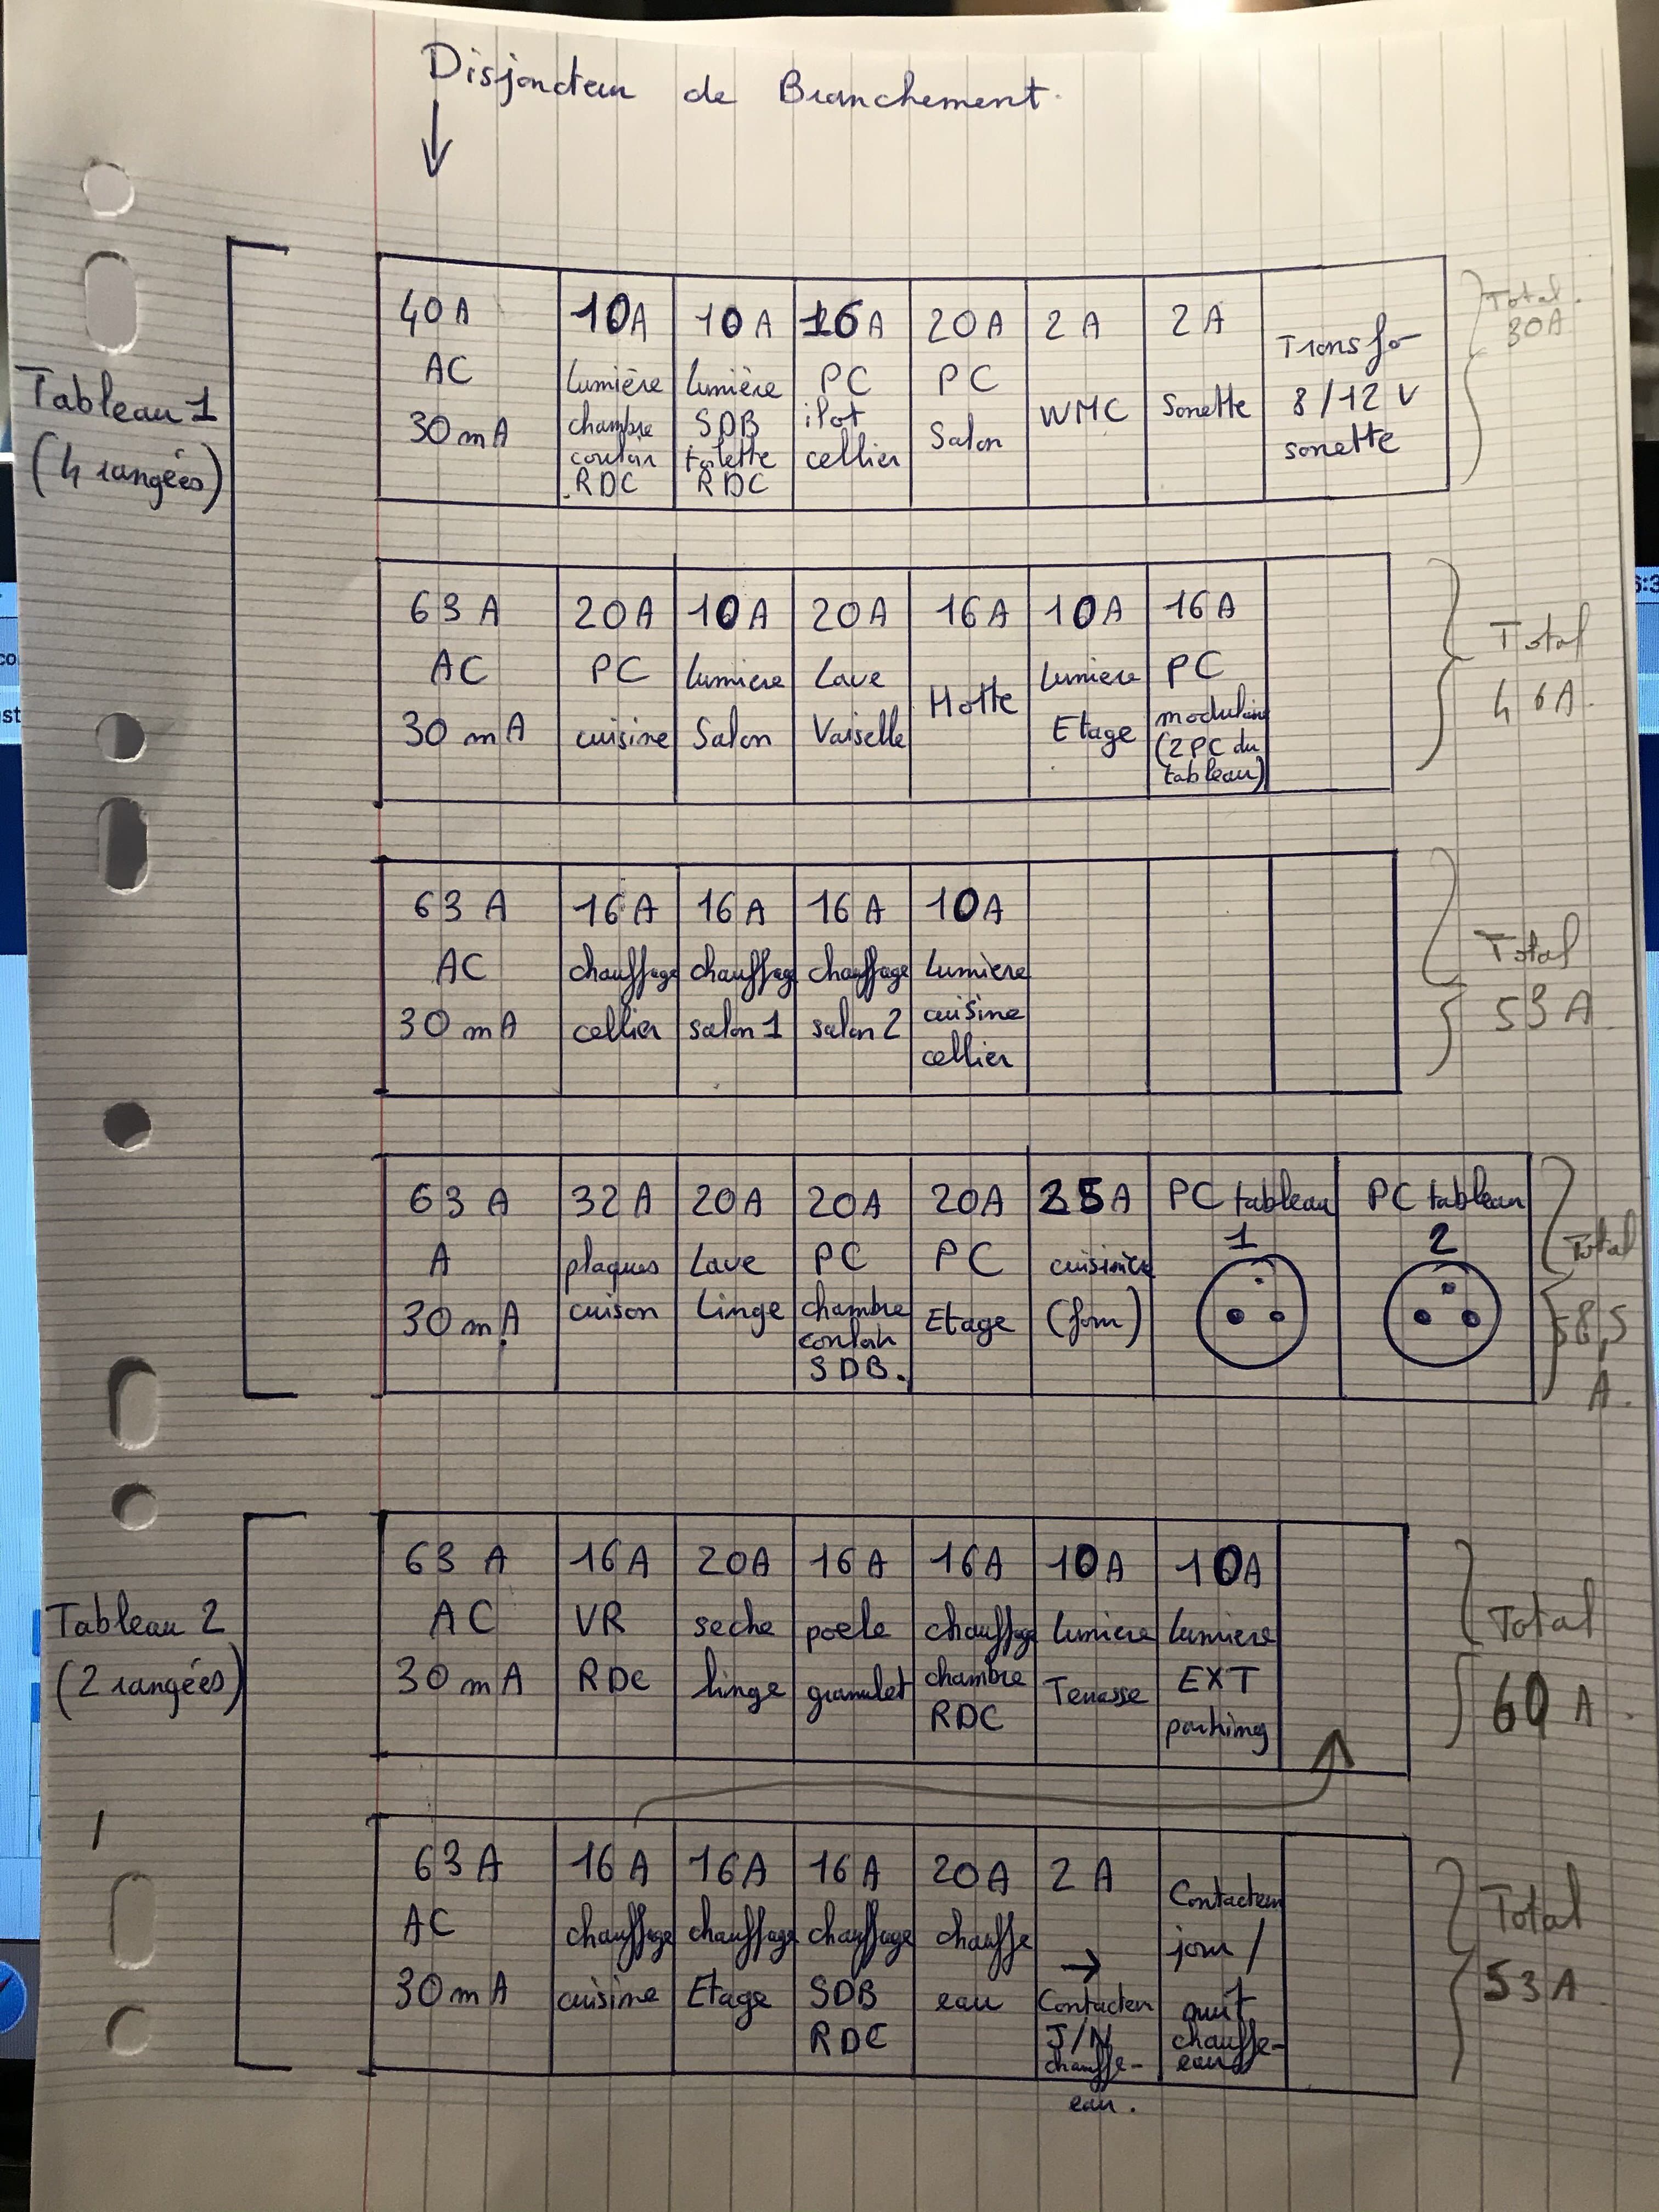 Disjoncteur de Branchement.
Tableau 1
(4 rangées)
40 A
AC
30 mA
10A
Lumière
chambre
couloir
RDC
10 A
Lumière
SDB
toilette
RDC
16 A
PC
ilot
cellier
20 A
PC
Salon
2 A
WMC
2 A
Sonette
Transfo
8/12 V
sonette
Total.
30A
63 A
AC
30 mA
20A
PC
cuisine
10A
Lumiere
Salon
20A
Lave
Vaiselle
16A
Hotte
10A
Lumiere
Etage
16A
PC
modulaire
(2 PC du
tableau)
Total
46A.
63 A
AC
30 mA
16 A
chauffage
cellier
16 A
chauffage
salon 1
16 A
chauffage
salon 2
10A
Lumiere
cuisine
cellier
Total
53 A
63 A
A
30 mA
32A
plaques
cuison
20A
Lave
Linge
20A
PC
chambre
couloir
SDB.
20A
PC
Etage
25A
cuisiniere
(four)
PC tableau
1
PC tableau
2
Total
58,5
A.
Tableau 2
(2 rangées)
63 A
AC
30 mA
16A
VR
RDC
20A
seche
linge
16A
poele
granulet
16A
chauffage
chambre
RDC
10A
lumiere
Terrasse
10A
lumiere
EXT
parking
Total
60 A.
63 A
AC
30 mA
16 A
chauffage
cuisine
16A
chauffage
Etage
16 A
chauffage
SDB
RDC
20A
chauffe
eau
2 A
Contacteur
J/N
chauffe-
eau.
Contacteur
jour /
nuit
chauffe-
eau
Total
53A